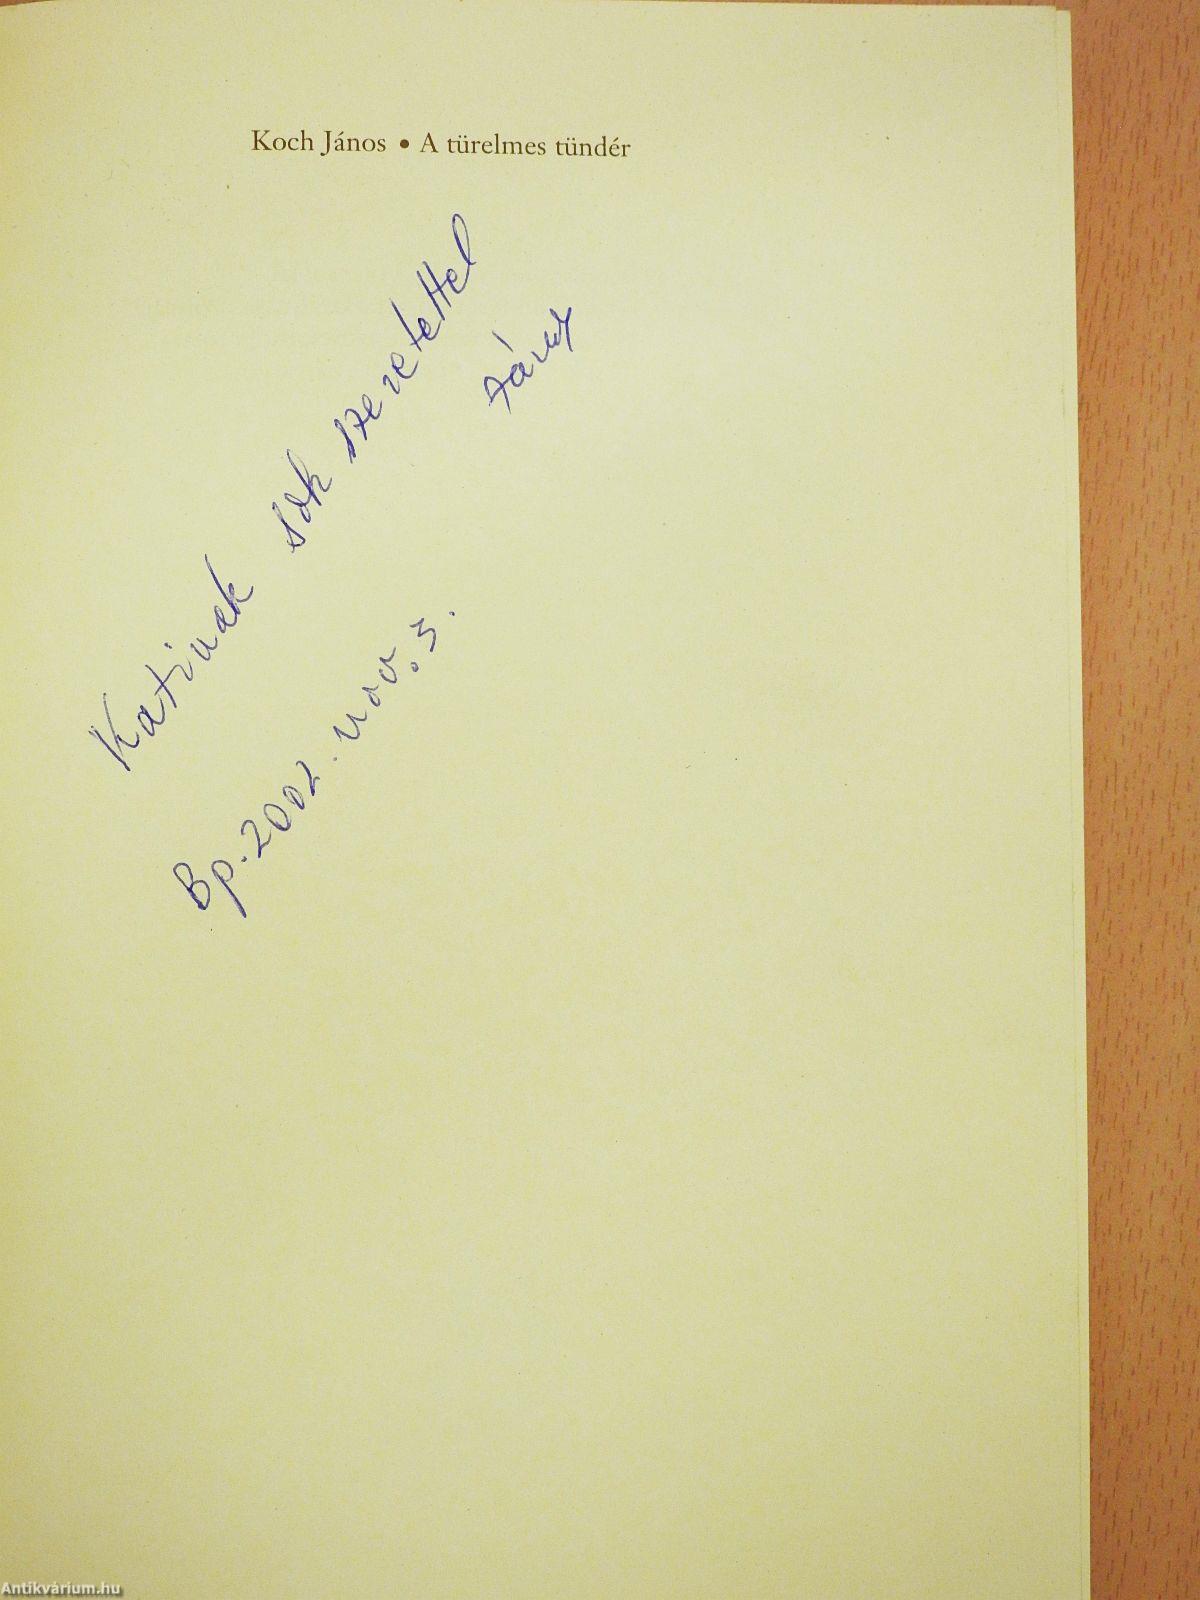 Koch János • A türelmes tündér
Katinak sok szeretettel
János
Bp. 2002. nov. 3.
Antikvárium.hu